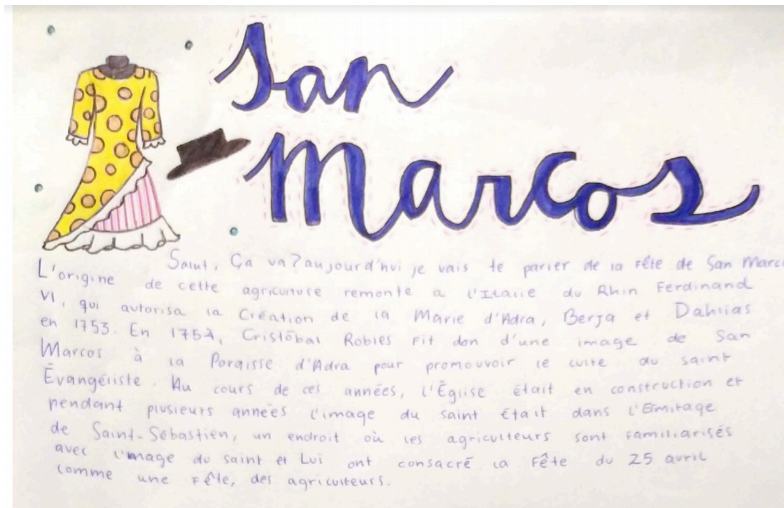 San
Marcos
Salut, Ça va? aujourd'hui je vais te parler de la Fête de San Marc
L'origine de cette agriculuse remonte a l'Italie du Rhin Ferdinand
VI, qui autorisa la Création de la Marie d'Adra, Berja et Dahlias
en 1753. En 1757, Cristóbal Robles Fit don d'une image de San
Marcos à la Poraisse d'Adra pour promouvoir le culte du saint
Évangéliste. Au cours de ces années, l'Église était en construction et
pendant plusieurs années l'image du saint était dans l'Ermitage
de Saint-Sébastien, un endroit où les agriculteurs sont familiarisés
avec l'image du saint et Lui ont consacré la Fête du 25 avril
comme une Fête, des agriculteurs.